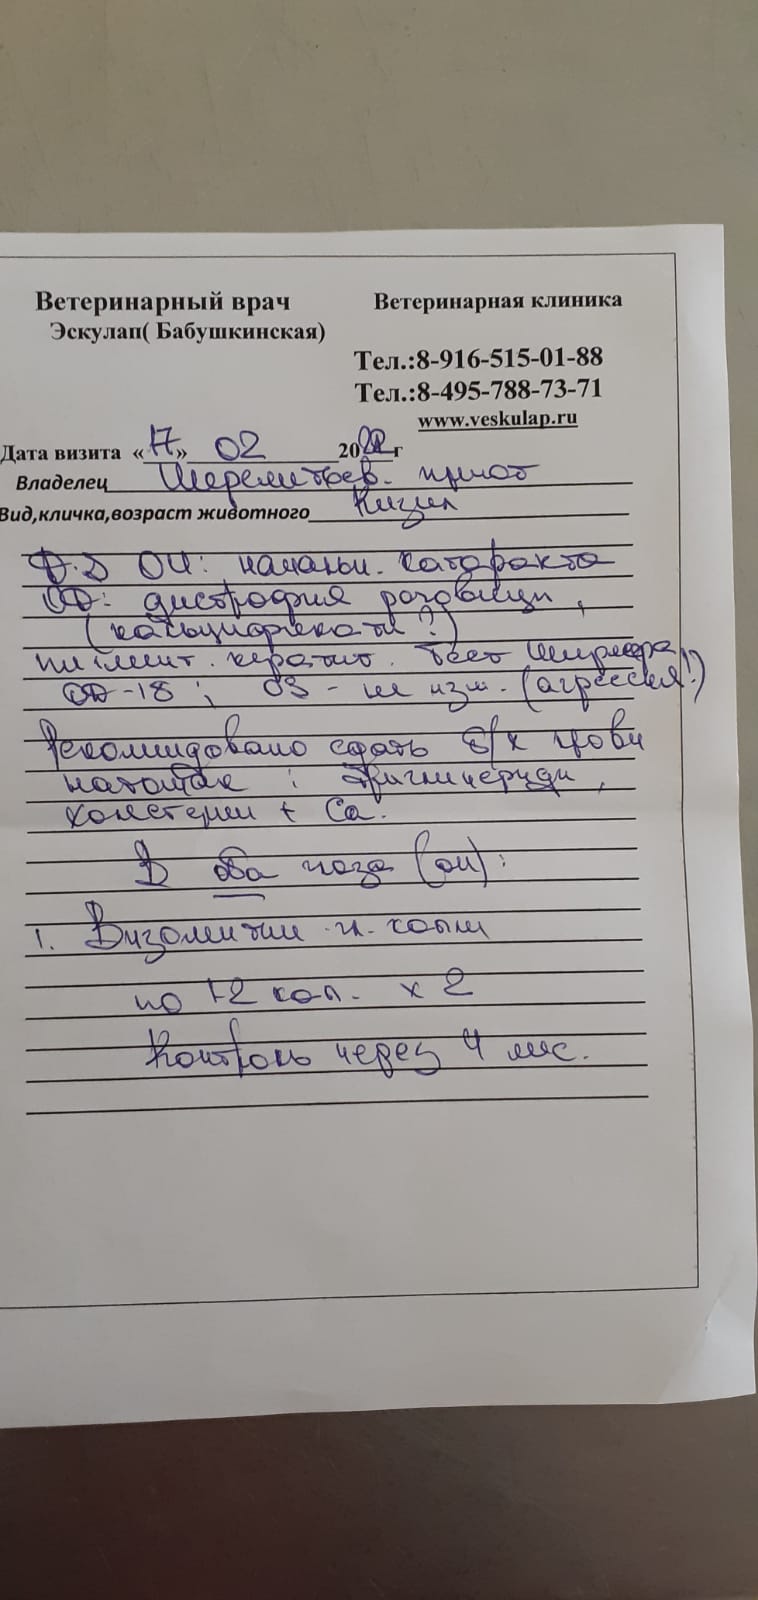 Ветеринарный врач
Эскулап( Бабушкинская)
Ветеринарная клиника
Тел.:8-916-515-01-88
Тел.:8-495-788-73-71
www.veskulap.ru
Дата визита «17» 02 2022г
Владелец Шереметьев. приют
Вид,кличка,возраст животного Кизил
OU: начальн. катаракта
OD: дистрофия роговицы,
(кальцификаты?)
пигмент. кератит. Тест Ширмера
OD-18; OS - не изм. (агрессия!)
Рекомендовано сдать б/х крови
натощак: триглицериды,
холестерин + Ca.
В оба глаза (ou):
1. Визомитин гл. капли
по 1-2 кап. x 2
Контроль через 4 мес.